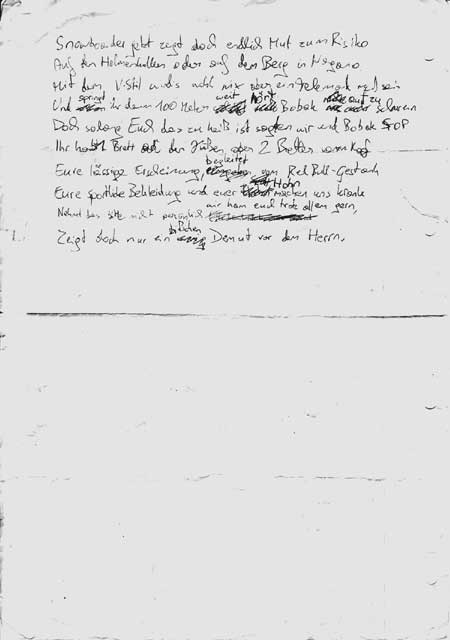 Snowboarder jetzt zeigt doch endlich Mut zum Risiko
Auf den Holmenkollen oder auf dem Berg in Nagano
Mit dem V-Stil wirds nicht nix aber ein Telemark muß sein
Und springt ihr dann 100 Meter weit hört Bobak auf zu schrein
Doch solang Euch das zu heiß ist sagten wir und Bobak STOP
Ihr habt 1 Brett an den Füßen aber 2 Bretter vorm Kopf
Eure lässige Erscheinung, begleitet vom Red Bull-Gestank
Eure sportliche Bekleidung und euer Hohn machen uns krank
Nehmt das bitte nicht persönlich wir ham euch trotz allem gern,
Zeigt doch nur ein bißchen Demut vor dem Herrn.